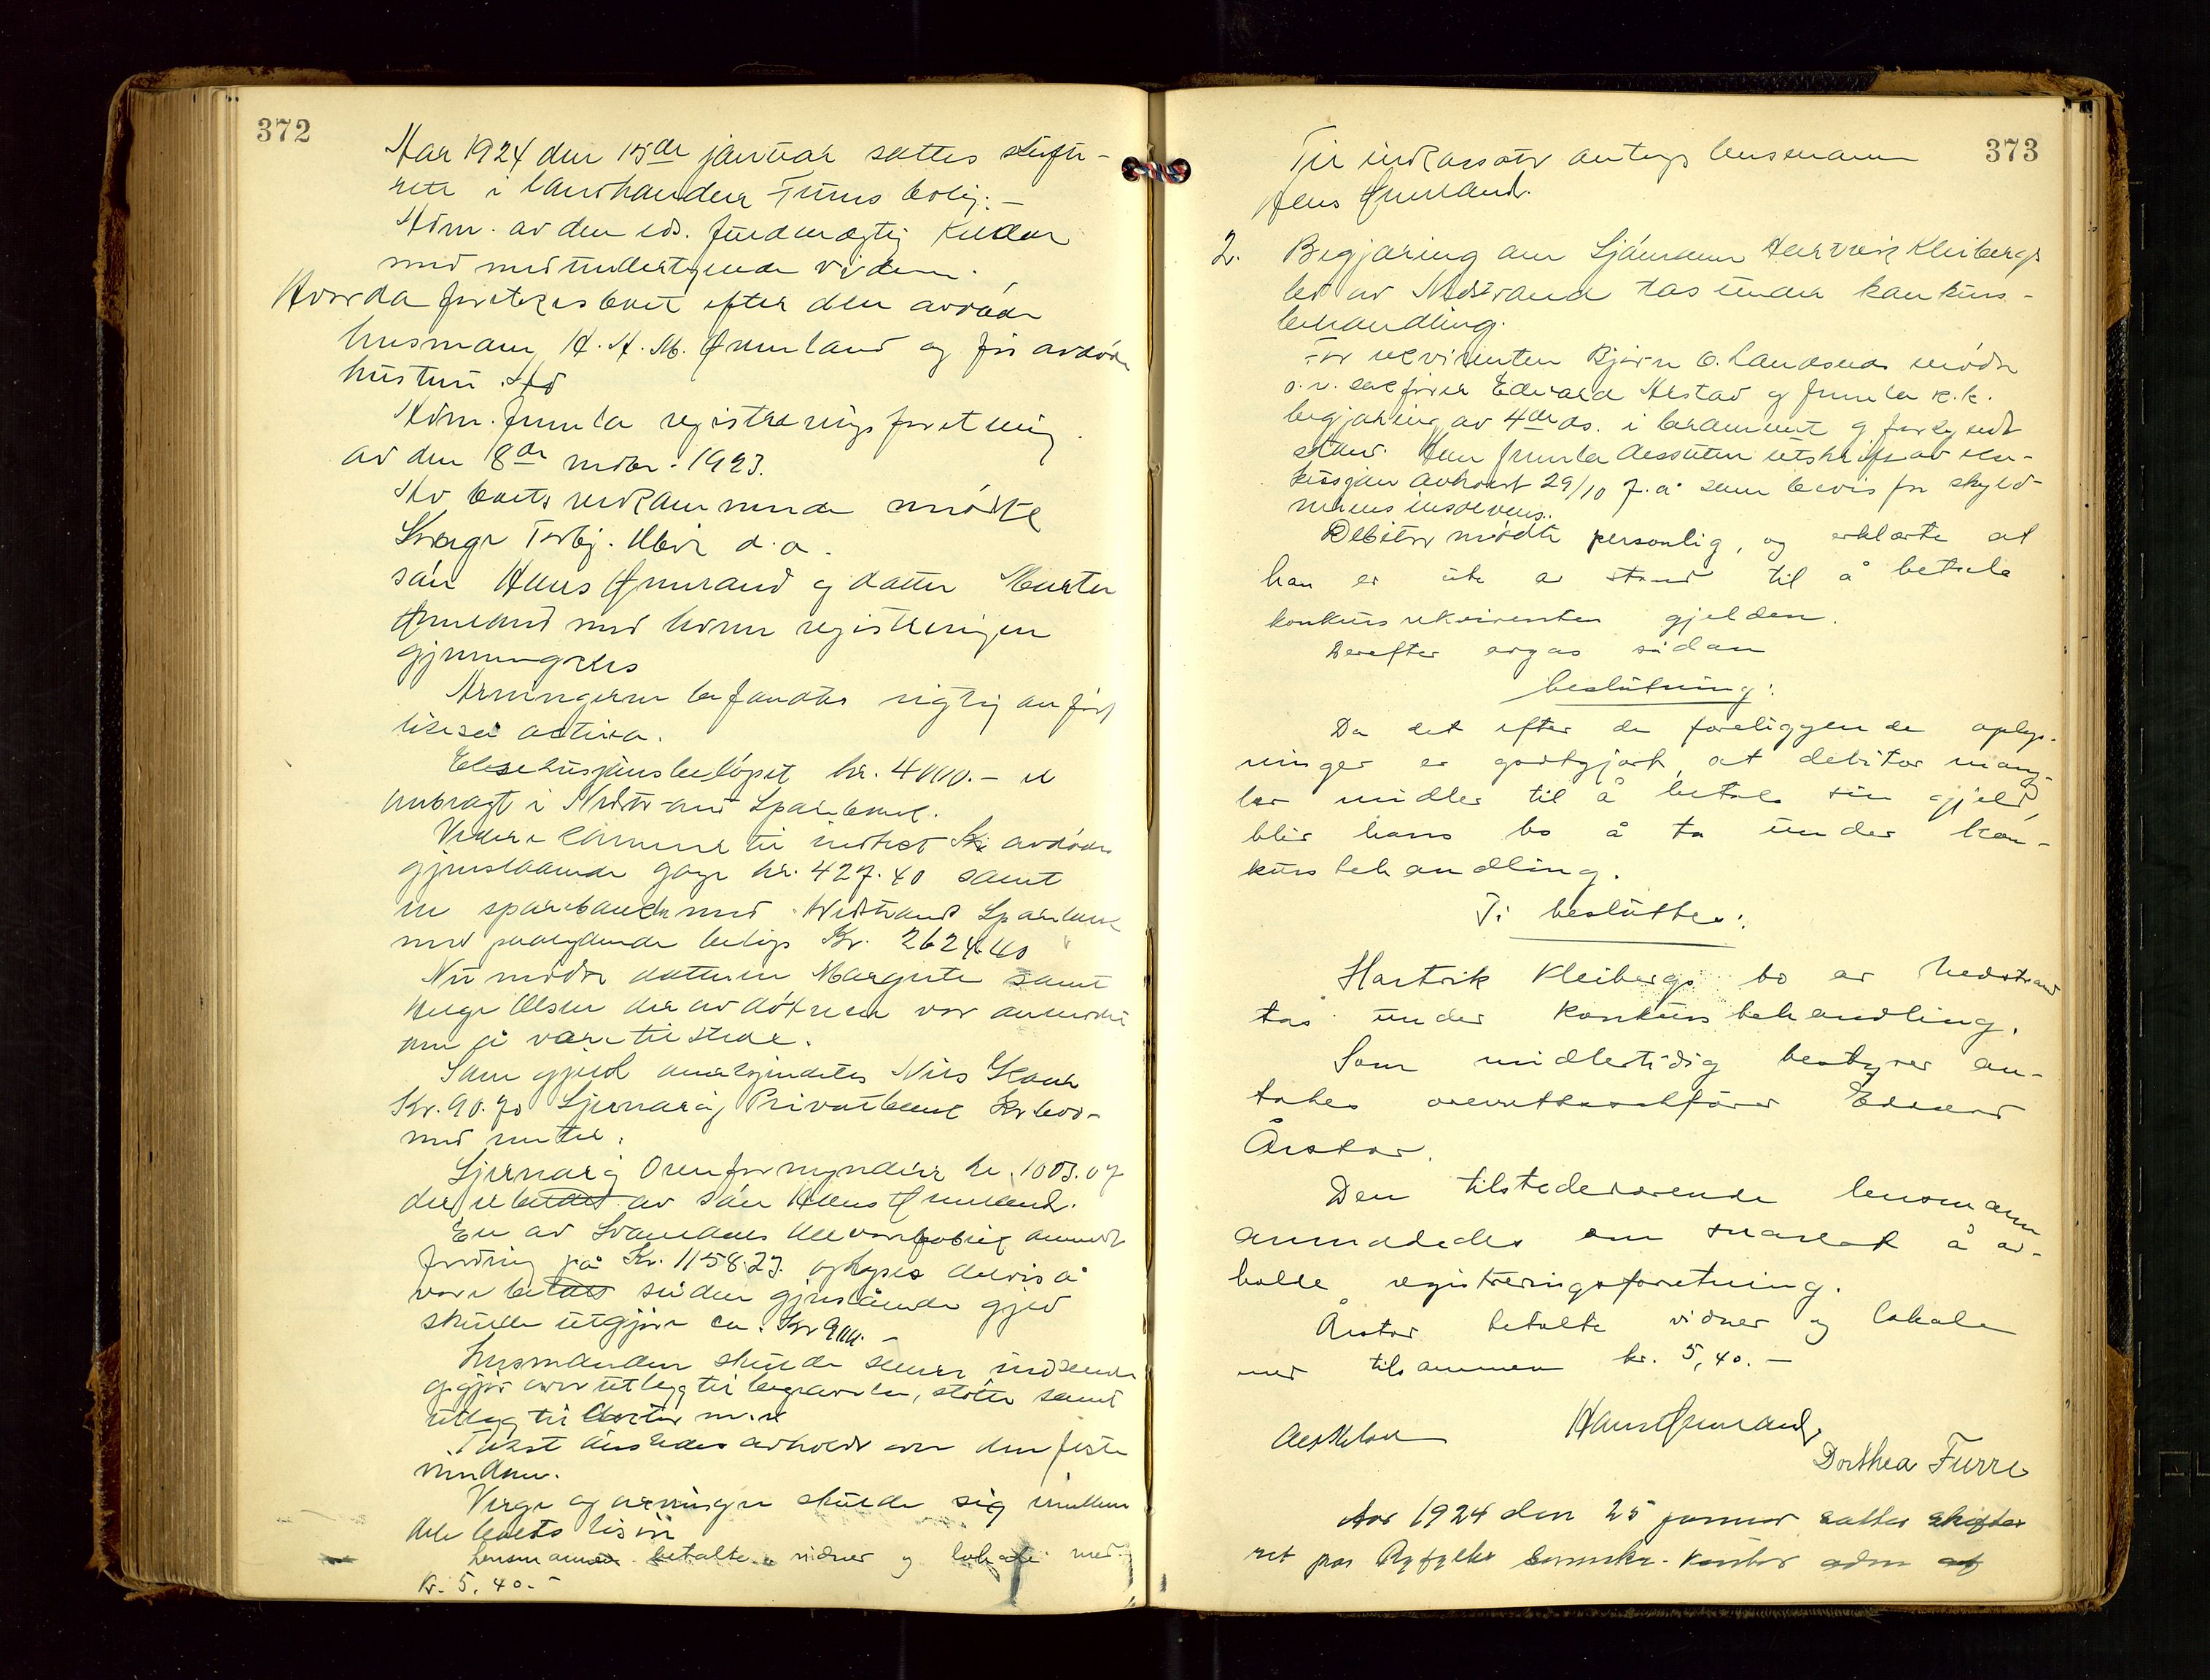 372
Aar 1924 den 15de januar sattes skifte-
rett i landhandler Furres bolig.-
Adm. av den eds. fuldmægtig
med medundertegnede vidner.
Hvorda foretokes boet efter den avdøde
husmann H. H. M. Ømmland og før avdøde
hustru
Adm. fremla registreringsforretning
av den 8de novbr. 1923.
Av boets vedkommende møtte
Verge Torbj.
søn Hans Ømmland og datter Marta
Ømmland med hvem registreringen
gjennemgikkes
Arvingerne befandtes rigtig anført
likesaa activa.
beløpet kr. 4000.- er
anbragt i Nedstrand Sparebank.
Videre kommer til indtægt avdødes
gjenstaaende gage kr. 427.40 samt
en sparebankbok med Nedstrand Sparebank
med paalydende beløp Kr. 2624.40
Nu møtte datteren Margrete samt
Helge Olsen der av døtrene var anmodet
om å være tilstede.
Som gjeld anerkjendtes Nils
Kr. 90.70 Sjernarøy Privatbank Kr
med renter.
Sjernarøy Overformynderi kr. 1003.07
der er betalt av søn Hans Ømmland.
En av anmeldt
fordring på Kr. 1158.23. oplyses delvis å
være betalt siden gjenstående gjeld
skulle utgjøre ca. Kr 900.-
Lensmanden skulde senere indsende
opgjør over utlegg til begravelse, støtte samt
utlegg til doctor m.v.
Takst ønskedes avholdt over den faste
eiendom.
Verge og arvinger skulde sig imellem
dele boets løsøre
Lensmannen betalte vidner og lokale med
kr. 5,40.-
373
Til inkassator antoges lensmann
Hans Ømmland.
2. Begjæring om Sjømann Hartvik Kleibergs
bo av Nedstrand tas under konkurs-
behandling.
For rekvirenten Bjørn O. Landsnes møtte
o.r. sakfører Edvard Årstad og fremla k.k.
begjæring av 4de ds. i beramment og forkyndt
stand. Han fremla dessuten utskrift av eks-
kusjon avholdt 29/10 f.å som bevis for skyld-
nerens insolvens.
Debitor mødte personlig, og erklærte at
han er ute av stand til å betale
konkursrekvirenten gjelden.
Derefter avgas sådan
beslutning:
Da det efter de foreliggende oplys-
ninger er godtgjort, at debitor mang-
ler midler til å betale sin gjeld,
blir hans bo å ta under kon-
kursbehandling.
Ti besluttes:
Hartvik Kleibergs bo av Nedstrand
tas under konkursbehandling.
Som midlertidig bestyrer an-
tokes overrettssakfører Edvard
Årstad.
Den tilstedeværende lensmann
anmodedes om snarest å av-
holde registreringsforretning.
Årstad betalte vidner og lokale
med tilsammen kr. 5,40.-
Hans Ømmland,
Dorthea Furre
Aar 1924 den 25 januar sattes skifte-
ret paa Ryfylke sorenskr. kontor adm af